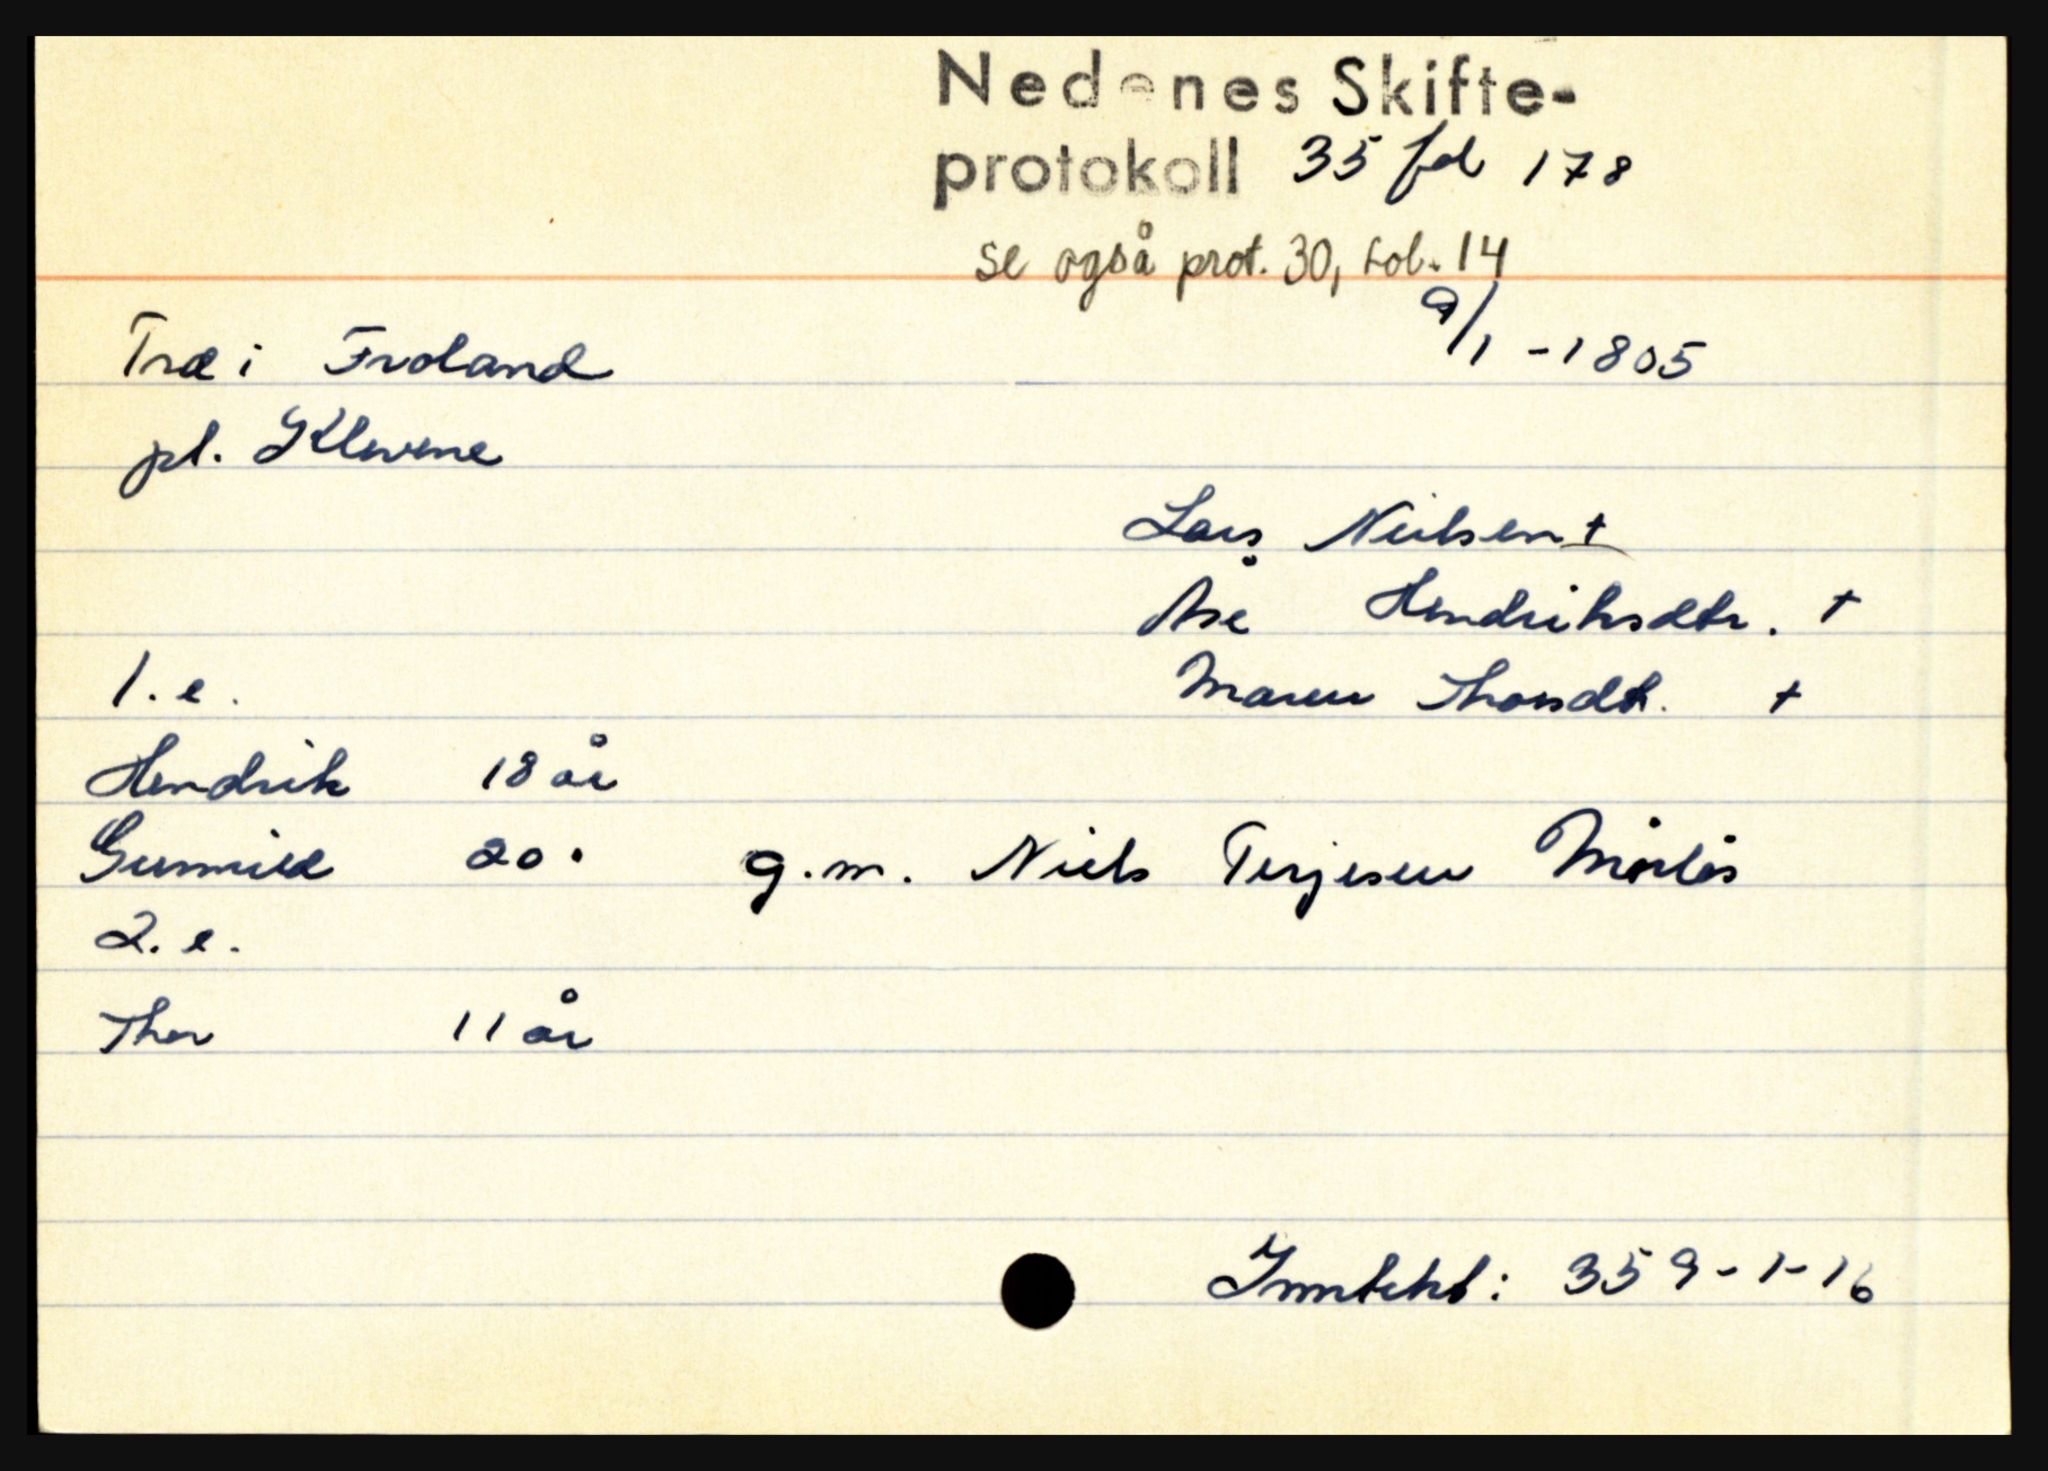 Nedenes Skifte-
protokoll 35 fol 178
se også prot. 30, fol. 14
9/1 - 1805
Træ i Froland
pl. Klevene
Lars Nielsen +
Åse Hendriksdtr. +
1. e. Maren Thorsdtr. +
Hendrik 18 år
Gunnild 20 " g.m. Niels Terjesen Mørlås
2. e.
Thor 11 år
Inntekt: 359-1-16